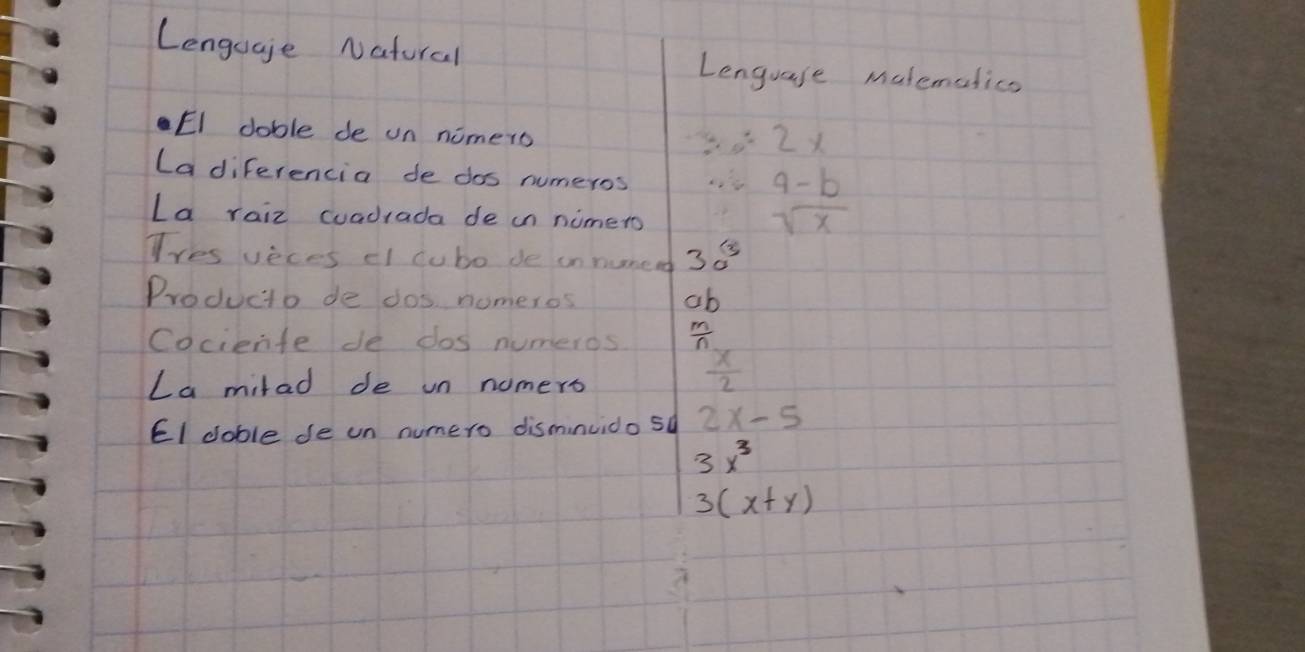 Lenguaje Natural
Lenguaje Matematico
•El doble de un número 2x
La diferencia de dos numeros a-b
La raiz cuadrada de un número √x
Tres veces el cubo de un numero 3a³
Producto de dos numeros ab
Cociente de dos numeros m/n
La mitad de un numero x/2
El doble de un numero disminuido 2x-5
3x³
3(x+y)